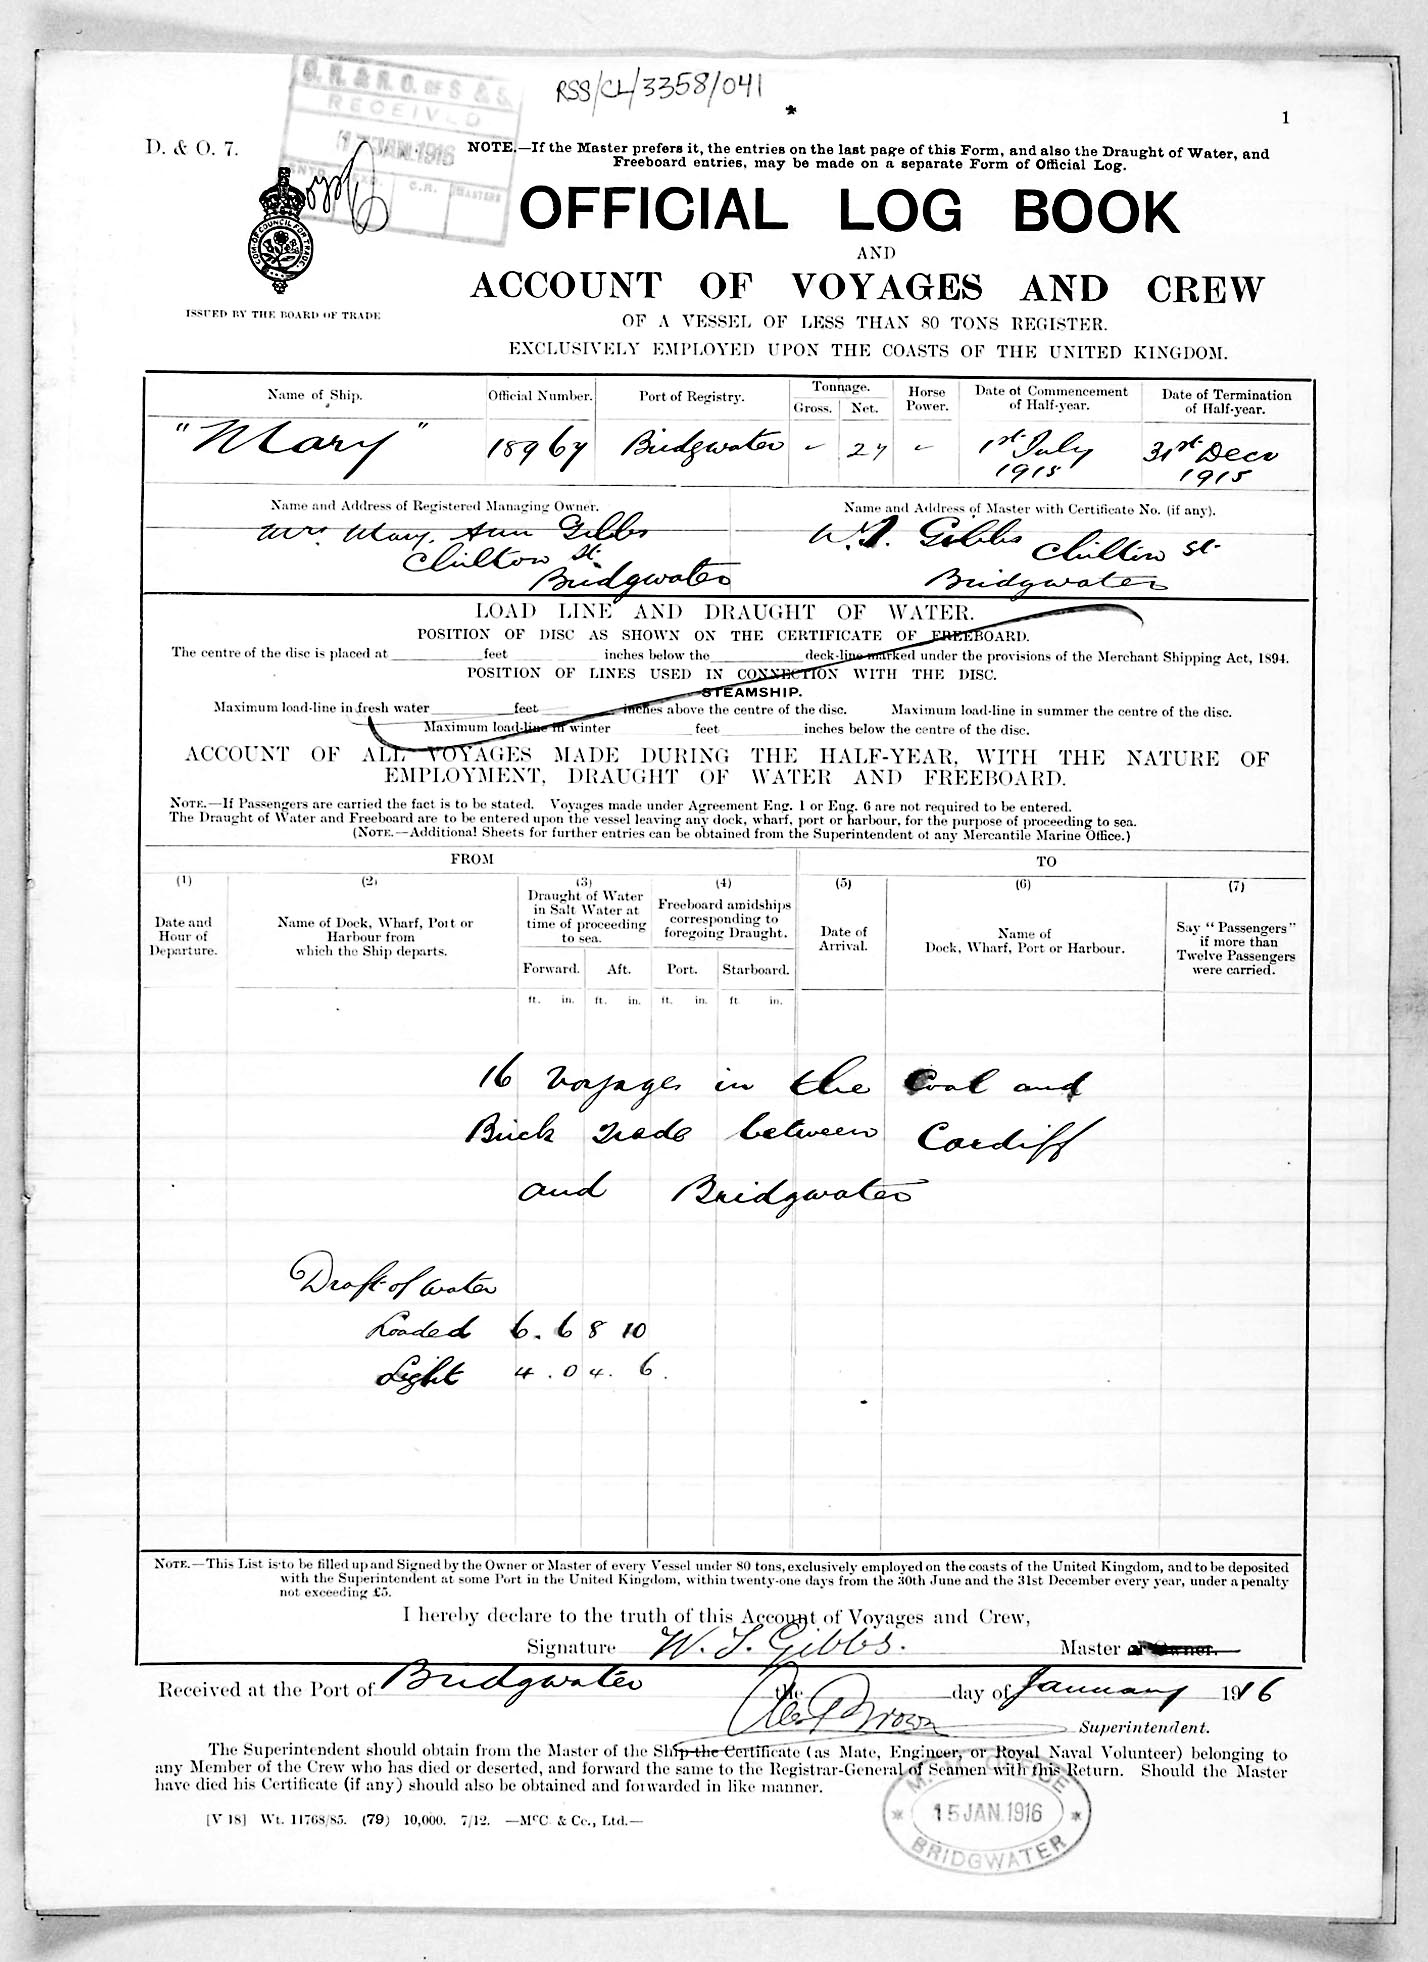 RSS/CL/3358/041
1
G. R. & R. O. OF S & S.
RECEIVED
17 JAN. 1916
C.R.
MASTERS
D. & O. 7.
NOTE.—If the Master prefers it, the entries on the last page of this Form, and also the Draught of Water, and
Freeboard entries, may be made on a separate Form of Official Log.
OFFICIAL LOG BOOK
AND
ACCOUNT OF VOYAGES AND CREW
ISSUED BY THE BOARD OF TRADE
OF A VESSEL OF LESS THAN 80 TONS REGISTER.
EXCLUSIVELY EMPLOYED UPON THE COASTS OF THE UNITED KINGDOM.
Name of Ship. Official Number. Port of Registry. Tonnage. Gross. Net. Horse Power. Date of Commencement of Half-year. Date of Termination of Half-year.
"Mary" 18967 Bridgwater 27 1st July 1915 31st Decr 1915
Name and Address of Registered Managing Owner. Name and Address of Master with Certificate No. (if any).
Mrs Mary Ann Gibbs W. J. Gibbs Chilton St.
Chilton St. Bridgwater
Bridgwater
LOAD LINE AND DRAUGHT OF WATER.
POSITION OF DISC AS SHOWN ON THE CERTIFICATE OF FREEBOARD.
The centre of the disc is placed at feet inches below the deck-line marked under the provisions of the Merchant Shipping Act, 1894.
POSITION OF LINES USED IN CONNECTION WITH THE DISC.
STEAMSHIP.
Maximum load-line in fresh water feet inches above the centre of the disc. Maximum load-line in summer the centre of the disc.
Maximum load-line in winter feet inches below the centre of the disc.
ACCOUNT OF ALL VOYAGES MADE DURING THE HALF-YEAR, WITH THE NATURE OF
EMPLOYMENT, DRAUGHT OF WATER AND FREEBOARD.
NOTE.—If Passengers are carried the fact is to be stated. Voyages made under Agreement Eng. 1 or Eng. 6 are not required to be entered.
The Draught of Water and Freeboard are to be entered upon the vessel leaving any dock, wharf, port or harbour, for the purpose of proceeding to sea.
(NOTE.—Additional Sheets for further entries can be obtained from the Superintendent of any Mercantile Marine Office.)
FROM TO
(1) (2) (3) (4) (5) (6) (7)
Date and Hour of Departure. Name of Dock, Wharf, Port or Harbour from which the Ship departs. Draught of Water in Salt Water at time of proceeding to sea. Freeboard amidships corresponding to foregoing Draught. Date of Arrival. Name of Dock, Wharf, Port or Harbour. Say "Passengers" if more than Twelve Passengers were carried.
Forward. Aft. Port. Starboard.
ft. in. ft. in. ft. in. ft. in.
16 Voyages in the Coal and
Brick Trade between Cardiff
and Bridgwater
Draft of water
Loaded 6. 6 8 10
Light 4. 0 4. 6.
NOTE.—This List is to be filled up and Signed by the Owner or Master of every Vessel under 80 tons, exclusively employed on the coasts of the United Kingdom, and to be deposited
with the Superintendent at some Port in the United Kingdom, within twenty-one days from the 30th June and the 31st December every year, under a penalty
not exceeding £5.
I hereby declare to the truth of this Account of Voyages and Crew,
Signature W. J. Gibbs. Master or Owner.
Received at the Port of Bridgwater the day of January 1916
Alex Brown Superintendent.
The Superintendent should obtain from the Master of the Ship the Certificate (as Mate, Engineer, or Royal Naval Volunteer) belonging to
any Member of the Crew who has died or deserted, and forward the same to the Registrar-General of Seamen with this Return. Should the Master
have died his Certificate (if any) should also be obtained and forwarded in like manner.
[V 18] Wt. 11768/85. (79) 10,000. 7/12. —McC & Co., Ltd.—
M. M. OFFICE
15 JAN. 1916
BRIDGWATER